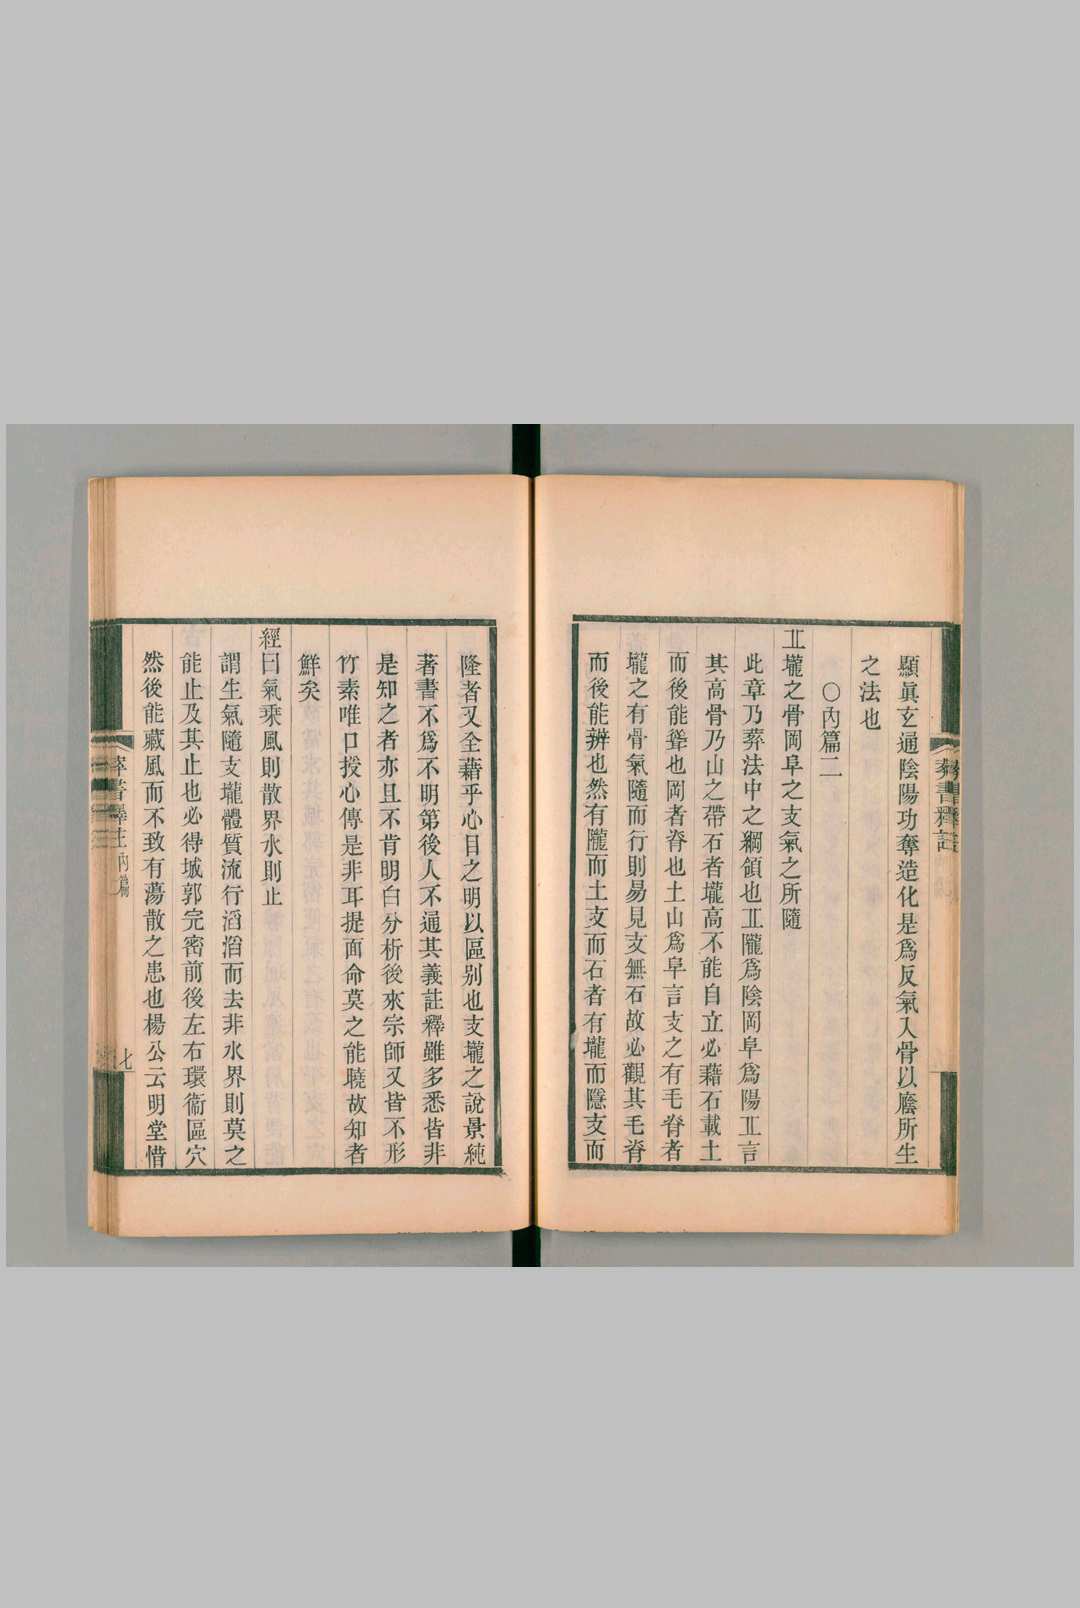 葬書釋註
顯眞玄通陰陽功奪造化是爲反氣入骨以廕所生
之法也
○內篇二
丠壠之骨岡阜之支氣之所隨
此章乃葬法中之綱領也丠隴爲陰岡阜爲陽丠言
其高骨乃山之帶石者壠高不能自立必藉石載土
而後能聳也岡者脊也土山爲阜言支之有毛脊者
壠之有骨氣隨而行則易見支無石故必觀其毛脊
而後能辨也然有隴而土支而石者有壠而隱支而
隆者又全藉乎心目之明以區别也支壠之說景純
著書不爲不明第後人不通其義註釋雖多悉皆非
是知之者亦且不肯明白分析後來宗師又皆不形
竹素唯口授心傳是非耳提面命莫之能曉故知者
鮮矣
經曰氣乘風則散界水則止
謂生氣隨支壠體質流行滔滔而去非水界則莫之
能止及其止也必得城郭完密前後左右環衞區穴
然後能藏風而不致有蕩散之患也楊公云明堂惜
葬書釋註 內篇二
七